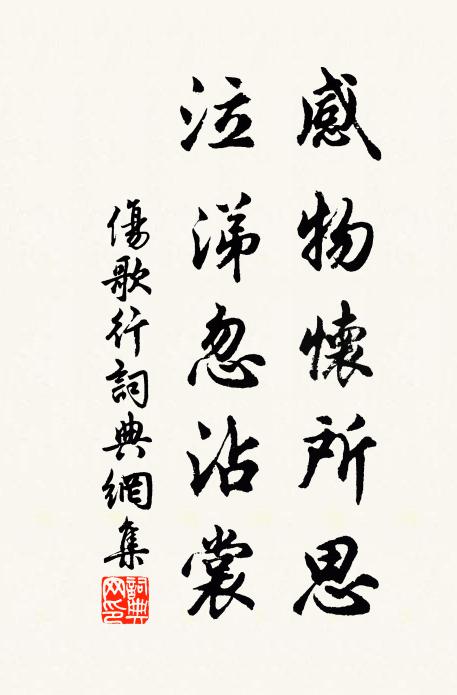 感物懷所思
泣涕忽沾裳
傷歌行詞典網集
詞典網印